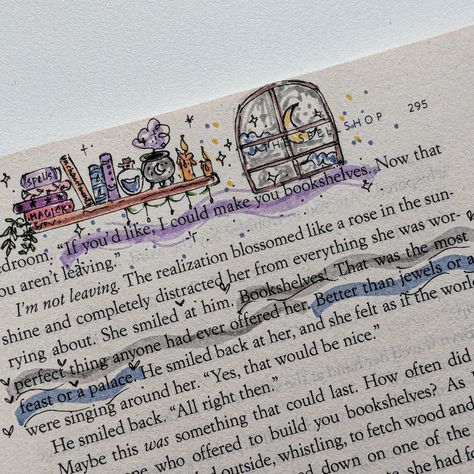 SHOP 295
SPELLS
MAGICK
edroom. "If you'd like, I could make you bookshelves. Now that
ou aren't leaving."
I'm not leaving. The realization blossomed like a rose in the sun-
shine and completely distracted her from everything she was wor-
rying about. She smiled at him. Bookshelves! That was the most
perfect thing anyone had ever offered her. Better than jewels or a
feast or a palace. He smiled back at her, and she felt as if the world
were singing around her. "Yes, that would be nice."
He smiled back. "All right then."
Maybe this was something that could last. How often did
one who offered to build you bookshelves? As
outside, whistling, to fetch wood and
down on one of the
she had